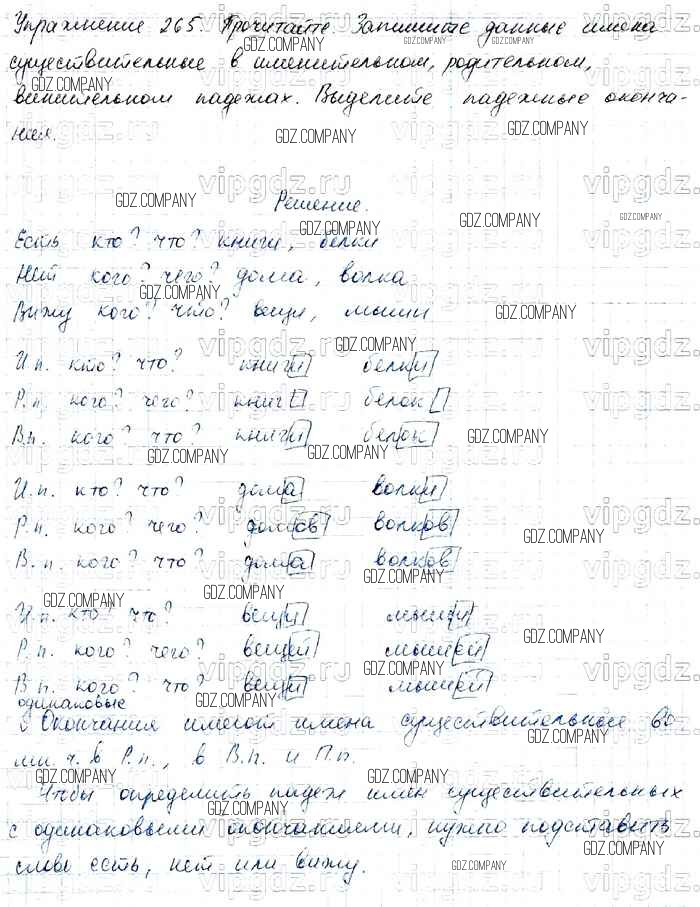 Упражнение 265. Прочитайте. Запишите данные имена
существительные в именительном, родительном,
винительном падежах. Выделите падежные оконча-
ния.
Решение.
Есть кто? что? книги, белки
Нет кого? чего? дома, волка
Вижу кого? что? вещи, мыши
И.п. кто? что? книги белки
Р.п. кого? чего? книг белок
В.п. кого? что? книги белок
И.п. кто? что? дома волки
Р.п. кого? чего? домов волков
В.п. кого? что? дома волков
И.п. кто? что? вещи мыши
Р.п. кого? чего? вещей мышей
В.п. кого? что? вещи мышей
одинаковые
Окончания имеют имена существительные во
мн.ч. в Р.п., в В.п. и П.п.
Чтобы определить падеж имен существительных
с одинаковыми окончаниями, нужно подставить
слово есть, нет или вижу.
GDZ.COMPANY
vipgdz.ru